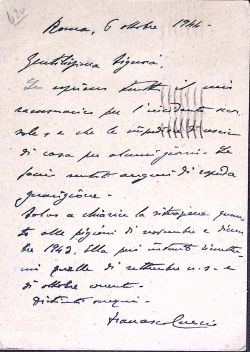 Roma, 6 ottobre 1944 -
Gentilissima Signora,
Le esprimo tutti i miei
rammarico per l'incidente
e che le impedisce di uscire
di casa per alcuni giorni. Le
faccio auguri di rapida
guarigione.
a chiarire la situazione
alle pigioni di novembre e dicem
bre 1943. Ella può intanto
mi quelle di settembre u.s. e
di ottobre corrente.
Distinti ossequi -
Francesco